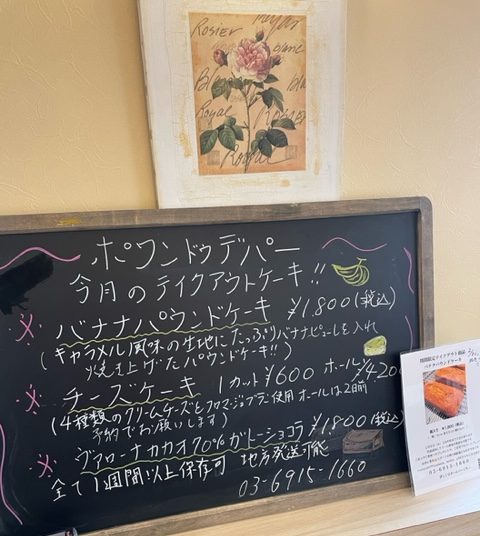 Rosier
blanc
Royal
ポワンドゥデパー
今月のテイクアウトケーキ!!
※ バナナパウンドケーキ ¥1,800(税込)
(キャラメル風味の生地にたっぷりバナナピューレを入れ
焼き上げたパウンドケーキ!!)
※ チーズケーキ 1カット¥600 ホール¥4200
(4種類のクリームチーズとフロマージュブラン使用 ホールは2日前
予約でお願いします)
※ ヴァローナカカオ70%ガトーショコラ ¥1,800(税込)
全て1週間以上保存可 地方発送可能
03-6915-1660
期間限定テイクアウト商品
バナナパウンドケーキ
03-6915-1660